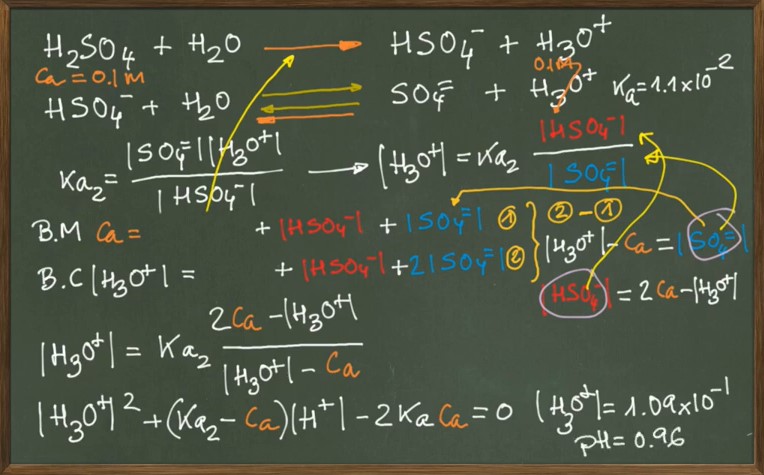 H₂SO₄ + H₂O → HSO₄⁻ + H₃O⁺
Ca = 0.1M 0.1M
HSO₄⁻ + H₂O ⇌ SO₄⁼ + H₃O⁺ Ka = 1.1x10⁻²
Ka₂ = |SO₄⁼||H₃O⁺| / |HSO₄⁻| → |H₃O⁺| = Ka₂ |HSO₄⁻| / |SO₄⁼|
B.M Ca = + |HSO₄⁻| + |SO₄⁼| ① } ② - ①
|H₃O⁺| - Ca = |SO₄⁼|
B.C |H₃O⁺| = + |HSO₄⁻| + 2|SO₄⁼| ②
|HSO₄⁻| = 2Ca - |H₃O⁺|
|H₃O⁺| = Ka₂ 2Ca - |H₃O⁺| / |H₃O⁺| - Ca
|H₃O⁺|² + (Ka₂ - Ca)|H⁺| - 2Ka Ca = 0 |H₃O⁺| = 1.09x10⁻¹
pH = 0.96